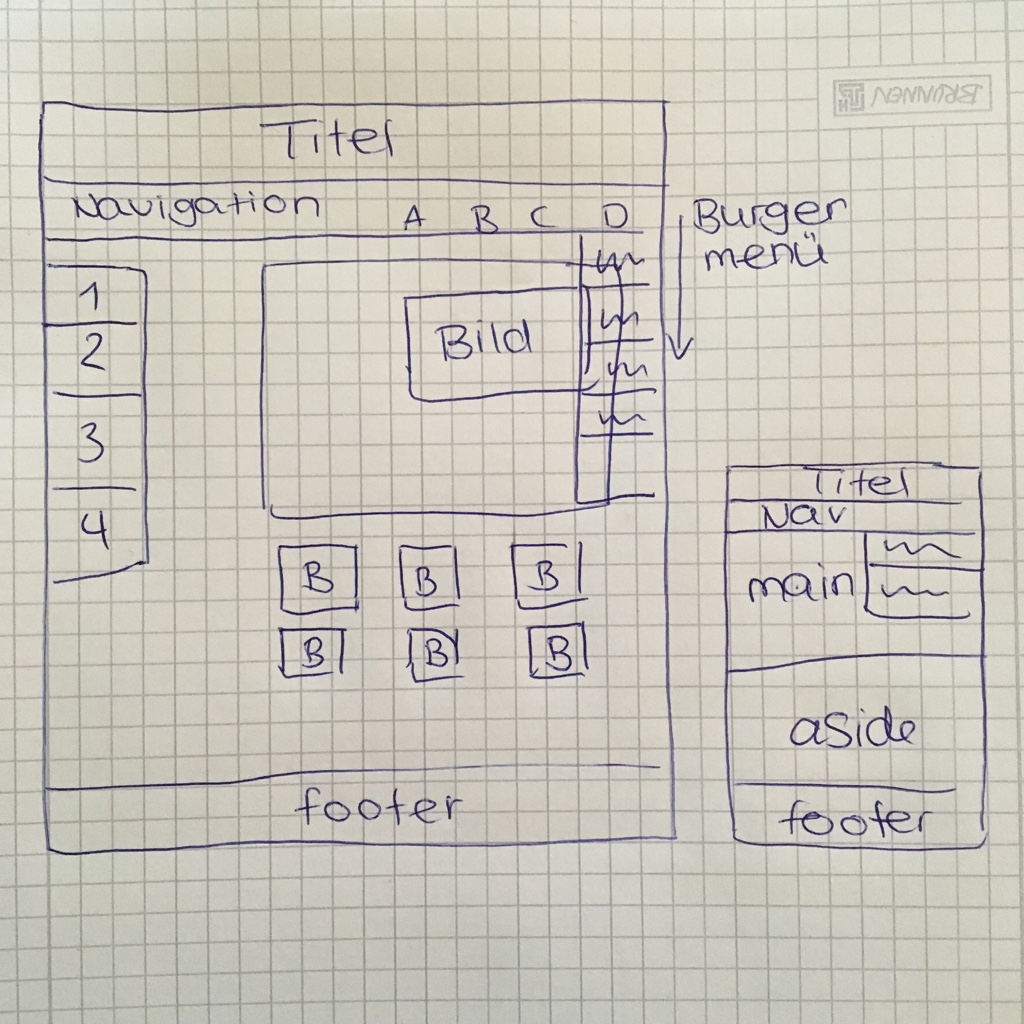 BRUNNEN
Titel
Navigation A B C D
Burger
menü
1
2
3
4
Bild
B B B
B B B
footer
Titel
Nav
main
aside
footer